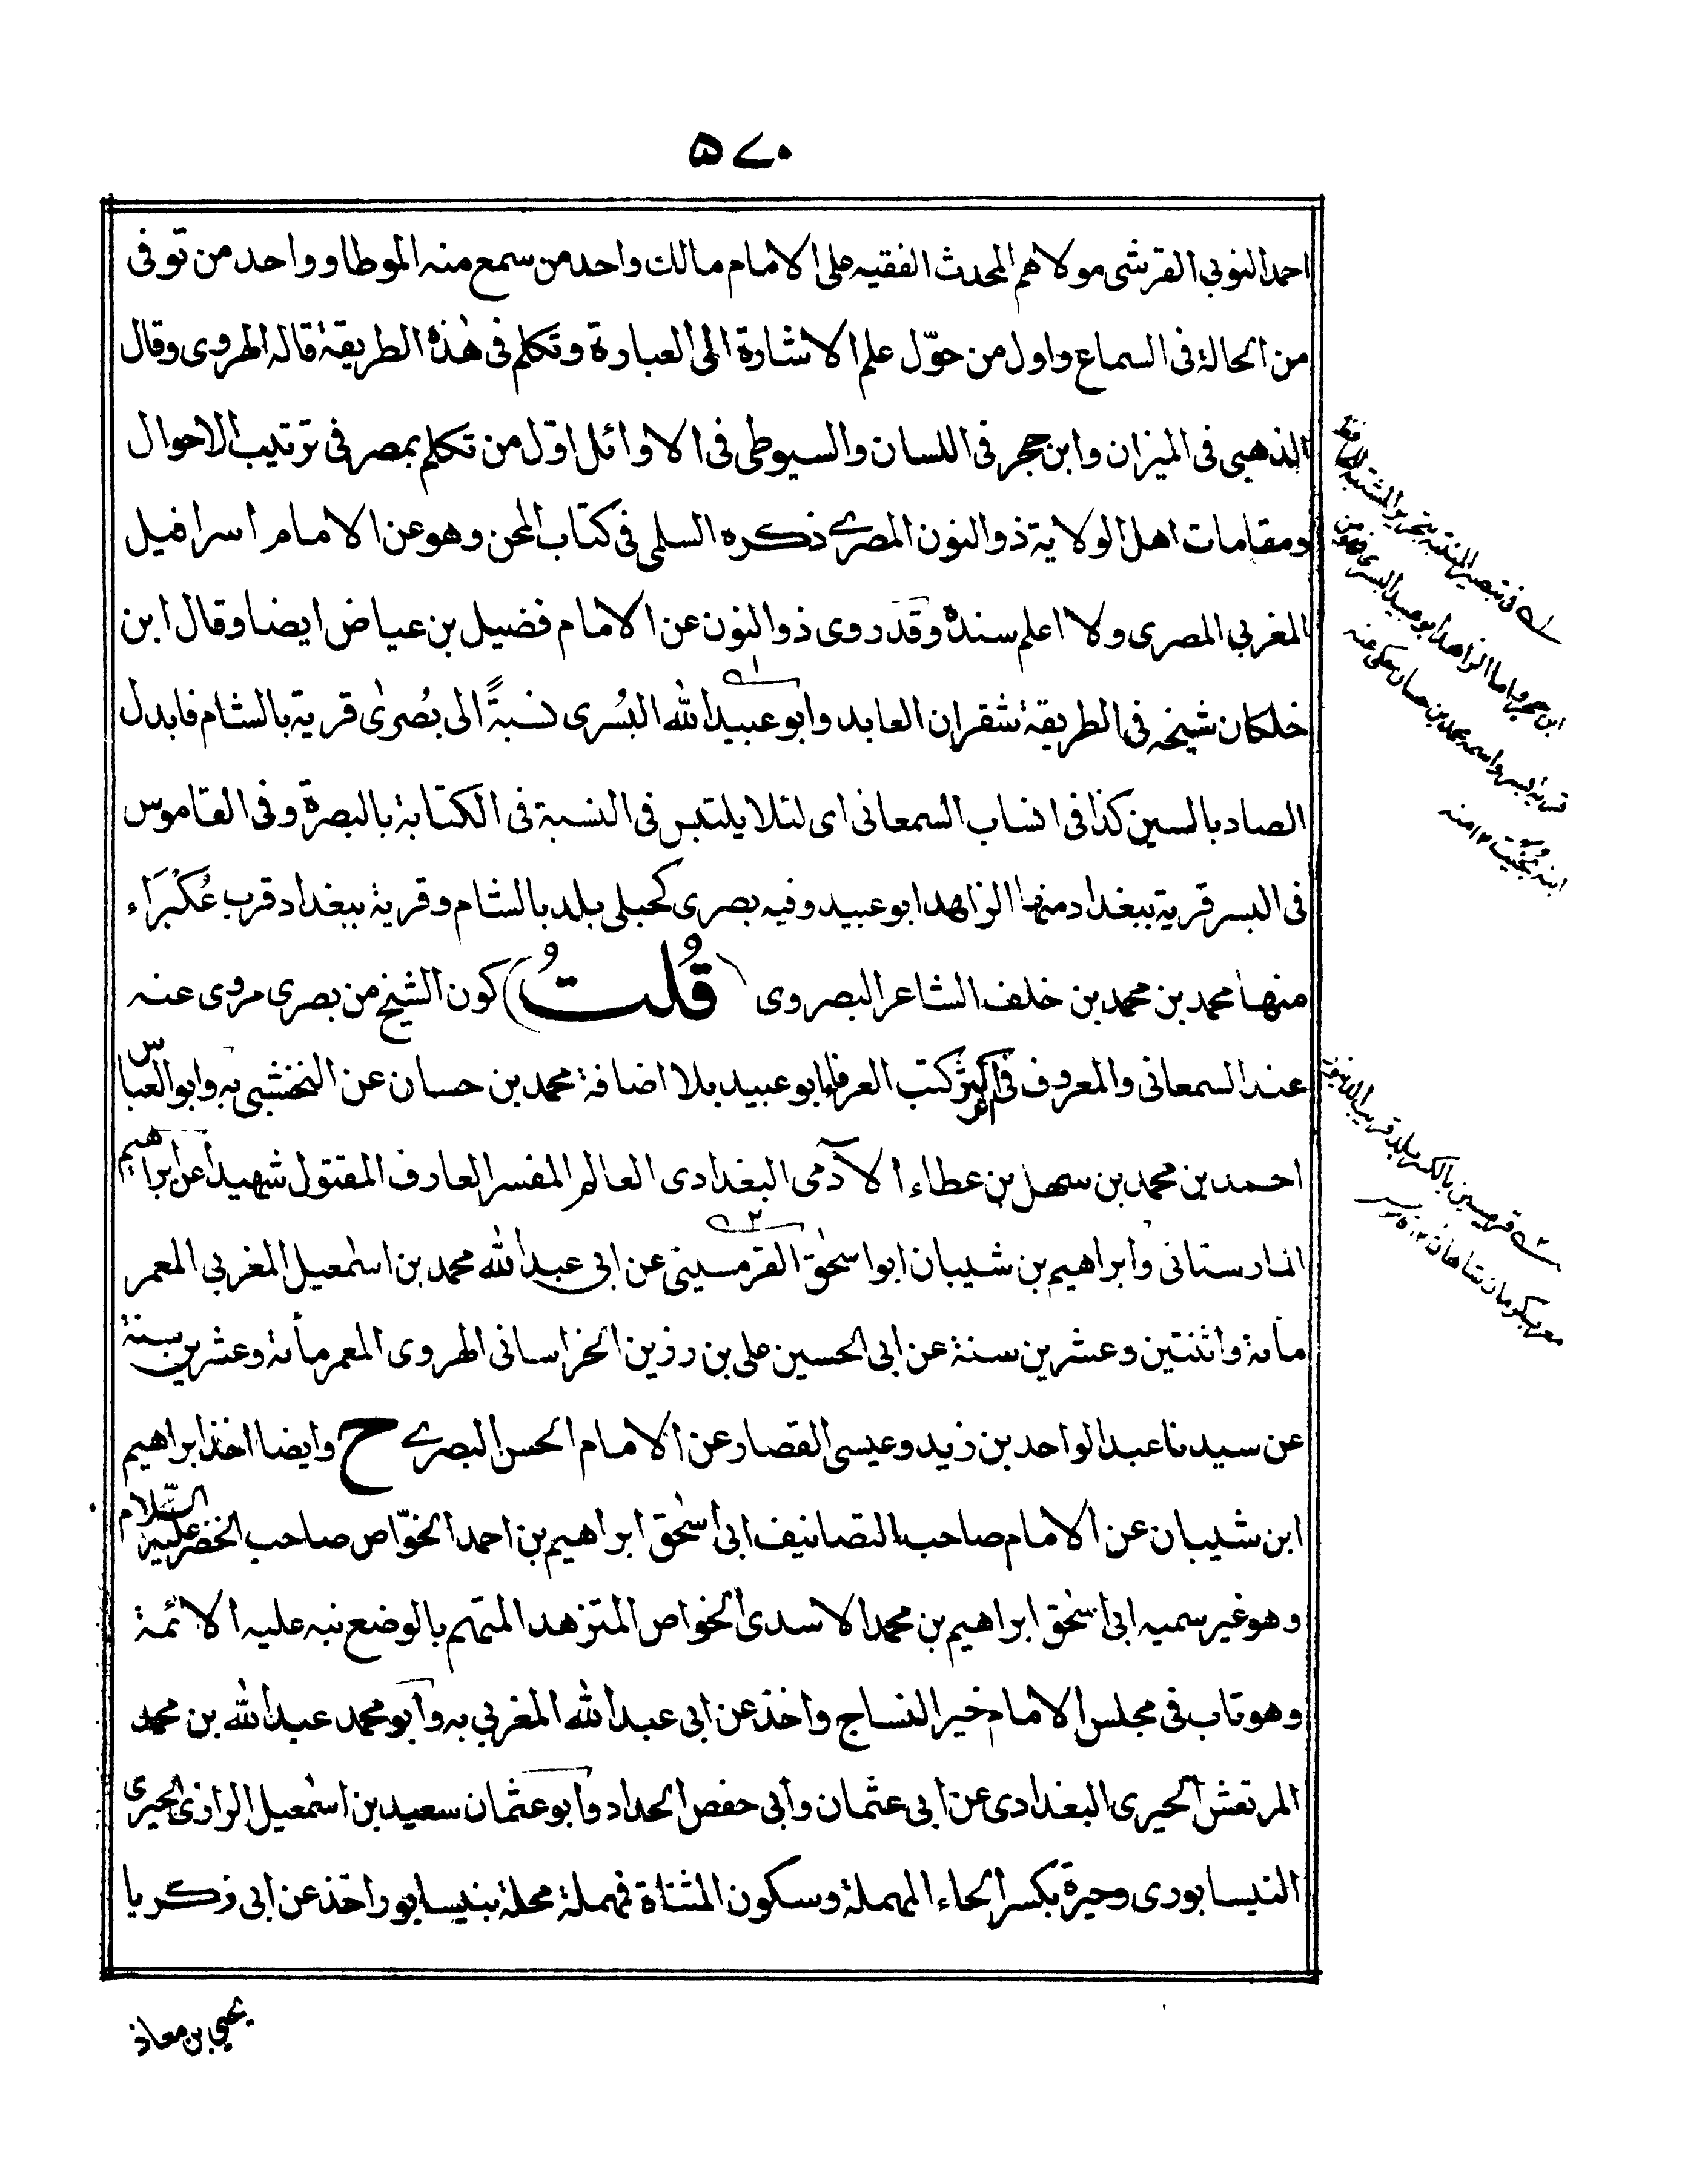 ۵۷۰
احمد النوبي القرشي مولاهم المحدث الفقيه على الامام مالك واحد من سمع منه الموطا وواحد من توفى
من الحالة فى السماع واول من حوّل علم الاشارة الى العبارة وتكلم فى هٰذه الطريقة قاله الهروى وقال
الذهبى فى الميزان وابن حجر فى اللسان والسيوطى فى الاوائل اوّل من تكلم بمصر فى ترتيب الاحوال
ومقامات اهل الولاية ذو النون المصرے ذكره السلمى فى كتاب المحن وهو عن الامام اسرافيل
المغربي المصرى ولا اعلم سنده وقد روى ذو النون عن الامام فضيل بن عياض ايضا وقال ابن
خلكان شيخه فى الطريقة شقران العابد وابو عبيد الله البُسرى نسبةً الى بُصرىٰ قرية بالشام فابدل
الصاد بالسين كذا فى انساب السمعانى اى لئلا يلتبس فى النسبة فى الكتابة بالبصرة وفى القاموس
فى البسر قرية ببغداد منها الزاهد ابو عبيد وفيه بصرى كحبلى بلد بالشام وقرية ببغداد قرب عُكْبَرَاء
منها محمد بن محمد بن خلف الشاعر البصروى (قُلتُ) كون الشيخ من بصرى مروى عنه
عند السمعانى والمعروف فى اكثر كتب العرفاء ابو عبيد بلا اضافة محمد بن حسان عن النخشبى به وابو العباس
احمد بن محمد بن سهل بن عطاء الآدمى البغدادى العالم المفسر العارف المقتول شهيدا عن ابراهيم
المارستانى وابراهيم بن شيبان ابو اسحٰق القرمسينى عن ابى عبد الله محمد بن اسمٰعيل المغربي المعمر
مأئة واثنتين وعشرين سنة عن ابى الحسين على بن رزين الخراسانى الهروى المعمر مأئة وعشرين سنة
عن سيدنا عبد الواحد بن زيد وعيسى القصار عن الامام الحسن البصرے ح وايضا اخذ ابراهيم
ابن شيبان عن الامام صاحب التصانيف ابى اسحٰق ابراهيم بن احمد الخوّاص صاحب الخضر عليه السّلام
وهو غير سميه ابى اسحٰق ابراهيم بن محمد الاسدى الخواص المتزهد المتهم بالوضع نبه عليه الائمة
وهو تاب فى مجلس الامام خير النساج واخذ عن ابى عبد الله المغربي به وابو محمد عبد الله بن محمد
المرتعش الحيرى البغدادى عن ابى عثمان وابى حفص الحداد وابو عثمان سعيد بن اسمٰعيل الرازى الحيرى
النيسابورى وحيرة بكسر الحاء المهملة وسكون المثناة فمهملة محلة بنيسابور اخذ عن ابى زكريا
يحيى بن معاذ
ل‍ه فى تبصير المنتبه بتحرير المشتبه
ابن حجر واما الزاهد ابو عبيد البسرى
قرية بسر واسمه محمد بن حسان حكى عنه
ابنه نجيب ١٢ منه
٢ه قرميسين بالكسر بلد قرب الدينور
معرب كرمان شاهان ١٢ قاموس